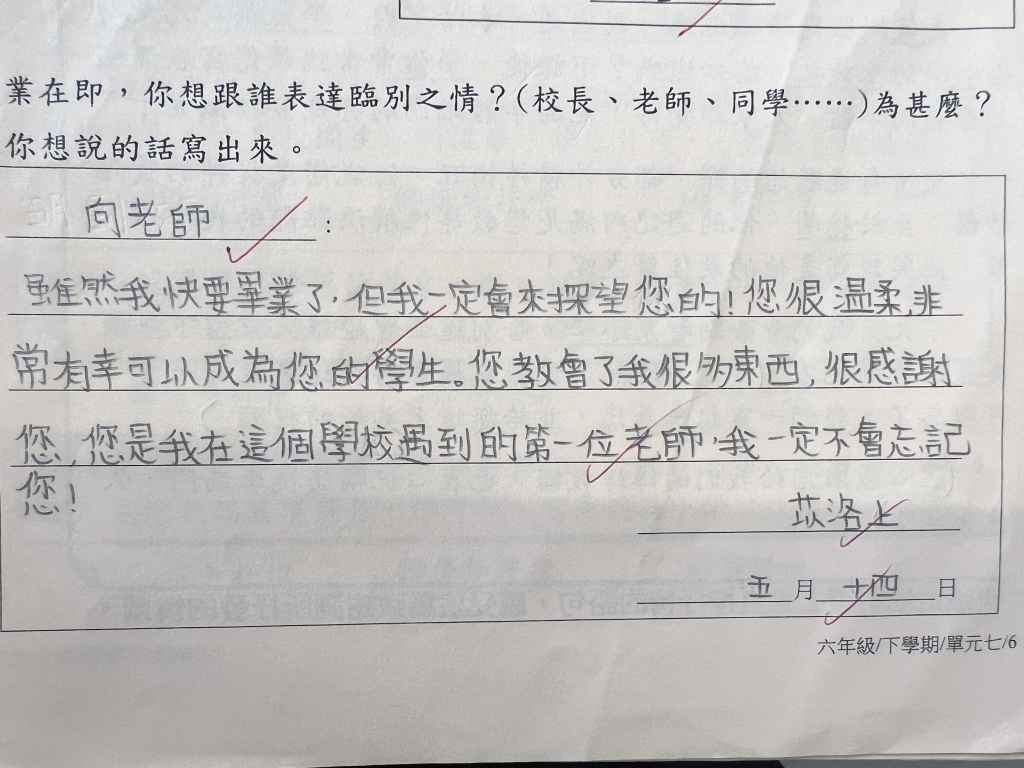 業在即，你想跟誰表達臨別之情？(校長、老師、同學……)為甚麼？
你想說的話寫出來。
向老師：
雖然我快要畢業了，但我一定會來探望您的！您很溫柔，非
常有幸可以成為您的學生。您教會了我很多東西，很感謝
您，您是我在這個學校遇到的第一位老師，我一定不會忘記
您！
苡洛上
五月十四日
六年級/下學期/單元七/6